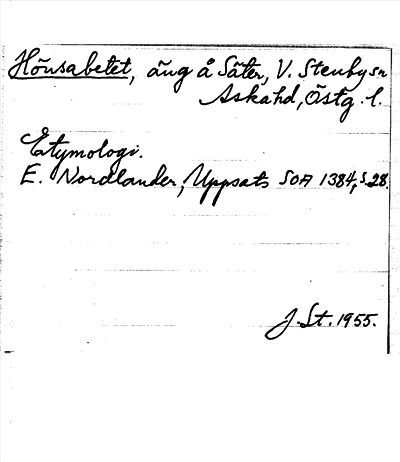 Hönsabetet, äng å Säter, V. Stenby sn
Askahd, Östg. l.
Etymologi.
E. Nordlander, Uppsats SOA 1384, s. 28.
J. St. 1955.